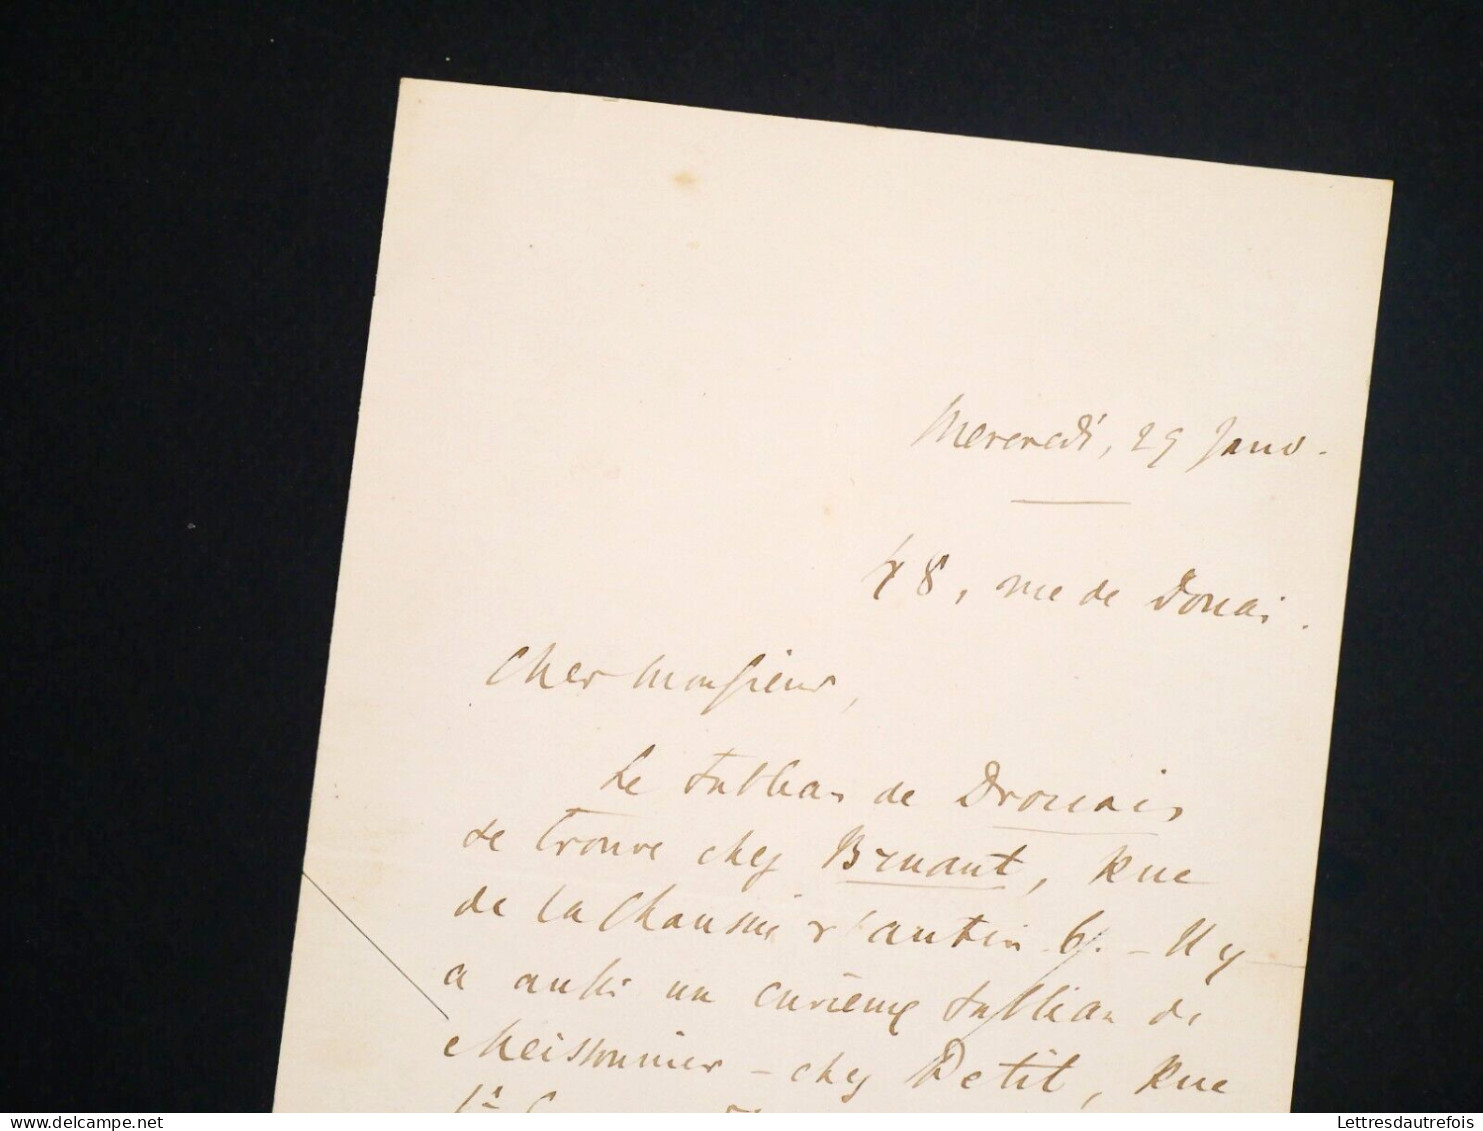 Mercredi, 29 Janv.
48, rue de Douai.
Cher Monsieur,
Le tableau de Drouais
se trouve chez Bruant, Rue
de la Chaussée d'antin 6. – Il y
a aussi un curieux tableau de
Meissonnier – chez Petit, Rue
Lettresdautrefois